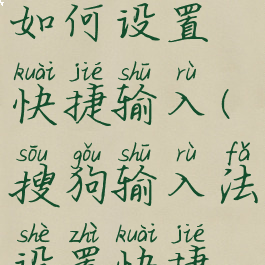 如何设置
kuài jié shū rù
快捷输入(
sōu gǒu shū rù fǎ
搜狗输入法
shè zhì kuài jié
设置快捷